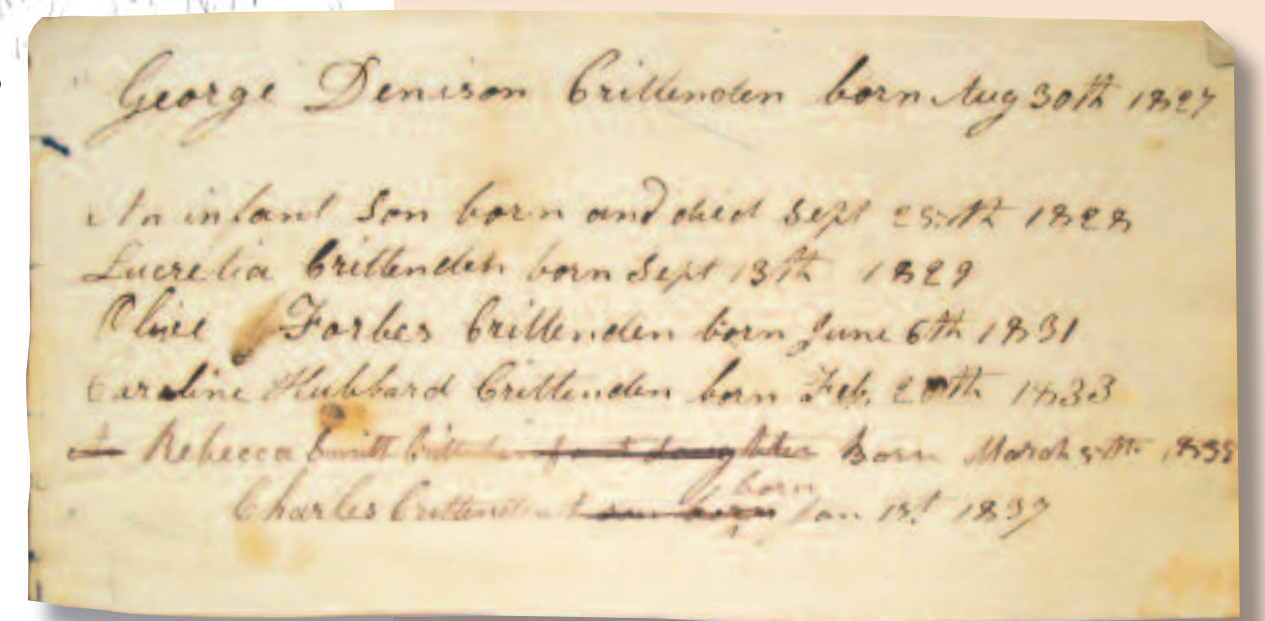 George Denison Crittenden born Aug 30th 1827
An infant Son born and died Sept 25th 1828
Lucretia Crittenden born Sept 13th 1829
Olive Forbes Crittenden born June 6th 1831
Caroline Hubbard Crittenden born Feb. 20th 1833
Rebecca daughter Born March
born
Charles Crittenden Jan 1st 1837